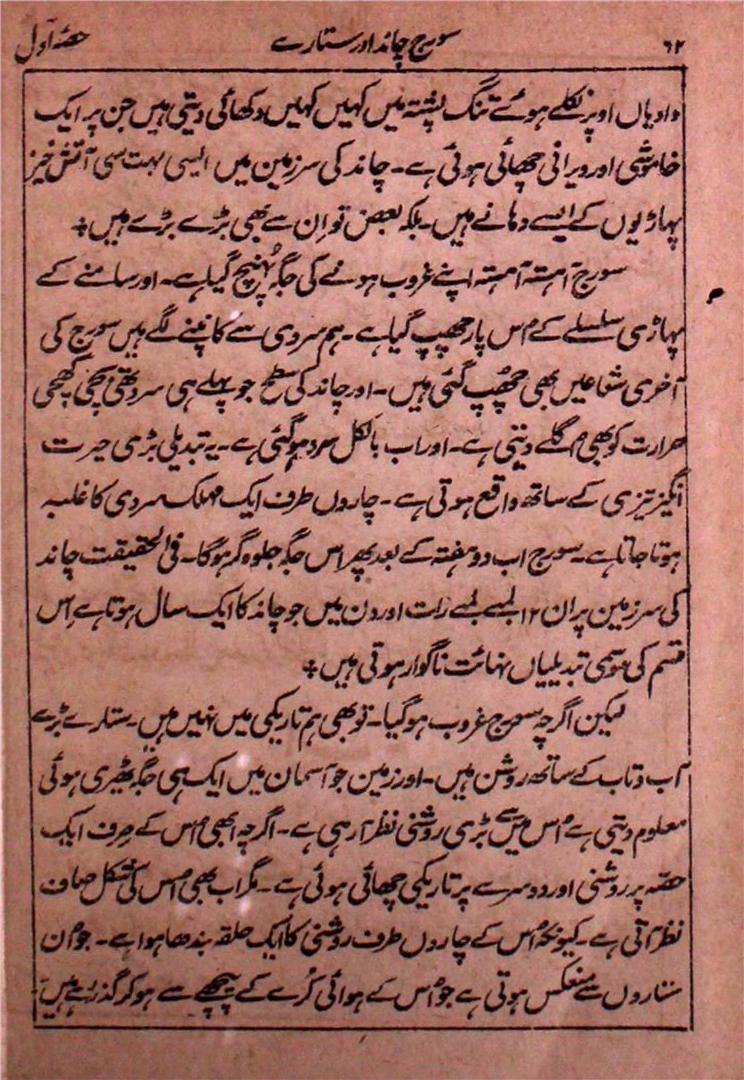 ۶۲ سورج چاند اور ستارے حصّہ اوّل
وادیاں اوپر نکلے ہوئے تنگ پشتہ میں کہیں کہیں دکھائی دیتی ہیں جن پر ایک
خاموشی اور ویرانی چھائی ہوئی ہے۔ چاند کی سرزمین میں ایسی بہت سی آتش خیز
پہاڑیوں کے ایسے دہانے ہیں۔ بلکہ بعض تو اِن سے بھی بڑے بڑے ہیں +
سورج آہستہ آہستہ اپنے غروب ہونے کی جگہ پُہنچ گیا ہے۔ اور سامنے کے
پہاڑی سلسلے کے اُس پار چھپ گیا ہے۔ ہم سردی سے کانپنے لگے ہیں سورج کی
آخری شعاعیں بھی چھُپ گئی ہیں۔ اور چاند کی سطح جو پہلے ہی سرد تھی بچی کھچی
حرارت کو بھی اُگلے دیتی ہے۔ اور اب بالکل سرد ہوگئی ہے۔ یہ تبدیلی بڑی حیرت
انگیز تیزی کے ساتھ واقع ہوتی ہے۔ چاروں طرف ایک مہلک سردی کا غلبہ
ہوتا جاتا ہے۔ سورج اب دو ہفتہ کے بعد پھر اس جگہ جلوہ گر ہوگا۔ فی الحقیقت چاند
کی سرزمین پر ان ۱۲ لمبے لمبے رات اور دن میں جو چاند کا ایک سال ہوتا ہے اِس
قسم کی موسمی تبدیلیاں نہائت ناگوار ہوتی ہیں +
لیکن اگرچہ سورج غروب ہوگیا۔ تو بھی ہم تاریکی میں نہیں ہیں۔ ستارے بڑے
آب و تاب کے ساتھ روشن ہیں۔ اور زمین جو آسمان میں ایک ہی جگہ ٹھیری ہوئی
معلوم دیتی ہے اُس میں سے بڑی روشنی نظر آرہی ہے۔ اگرچہ ابھی اُس کے صِرف ایک
حصّہ پر روشنی اور دوسرے پر تاریکی چھائی ہوئی ہے۔ مگر اب بھی اُس کی شکل صاف
نظر آتی ہے۔ کیونکہ اُس کے چاروں طرف روشنی کا ایک حلقہ بندھا ہوا ہے۔ جو اُن
ستاروں سے منعکس ہوتی ہے جو اُس کے ہوائی کُرے کے پیچھے سے ہوکر گذرے ہیں۔